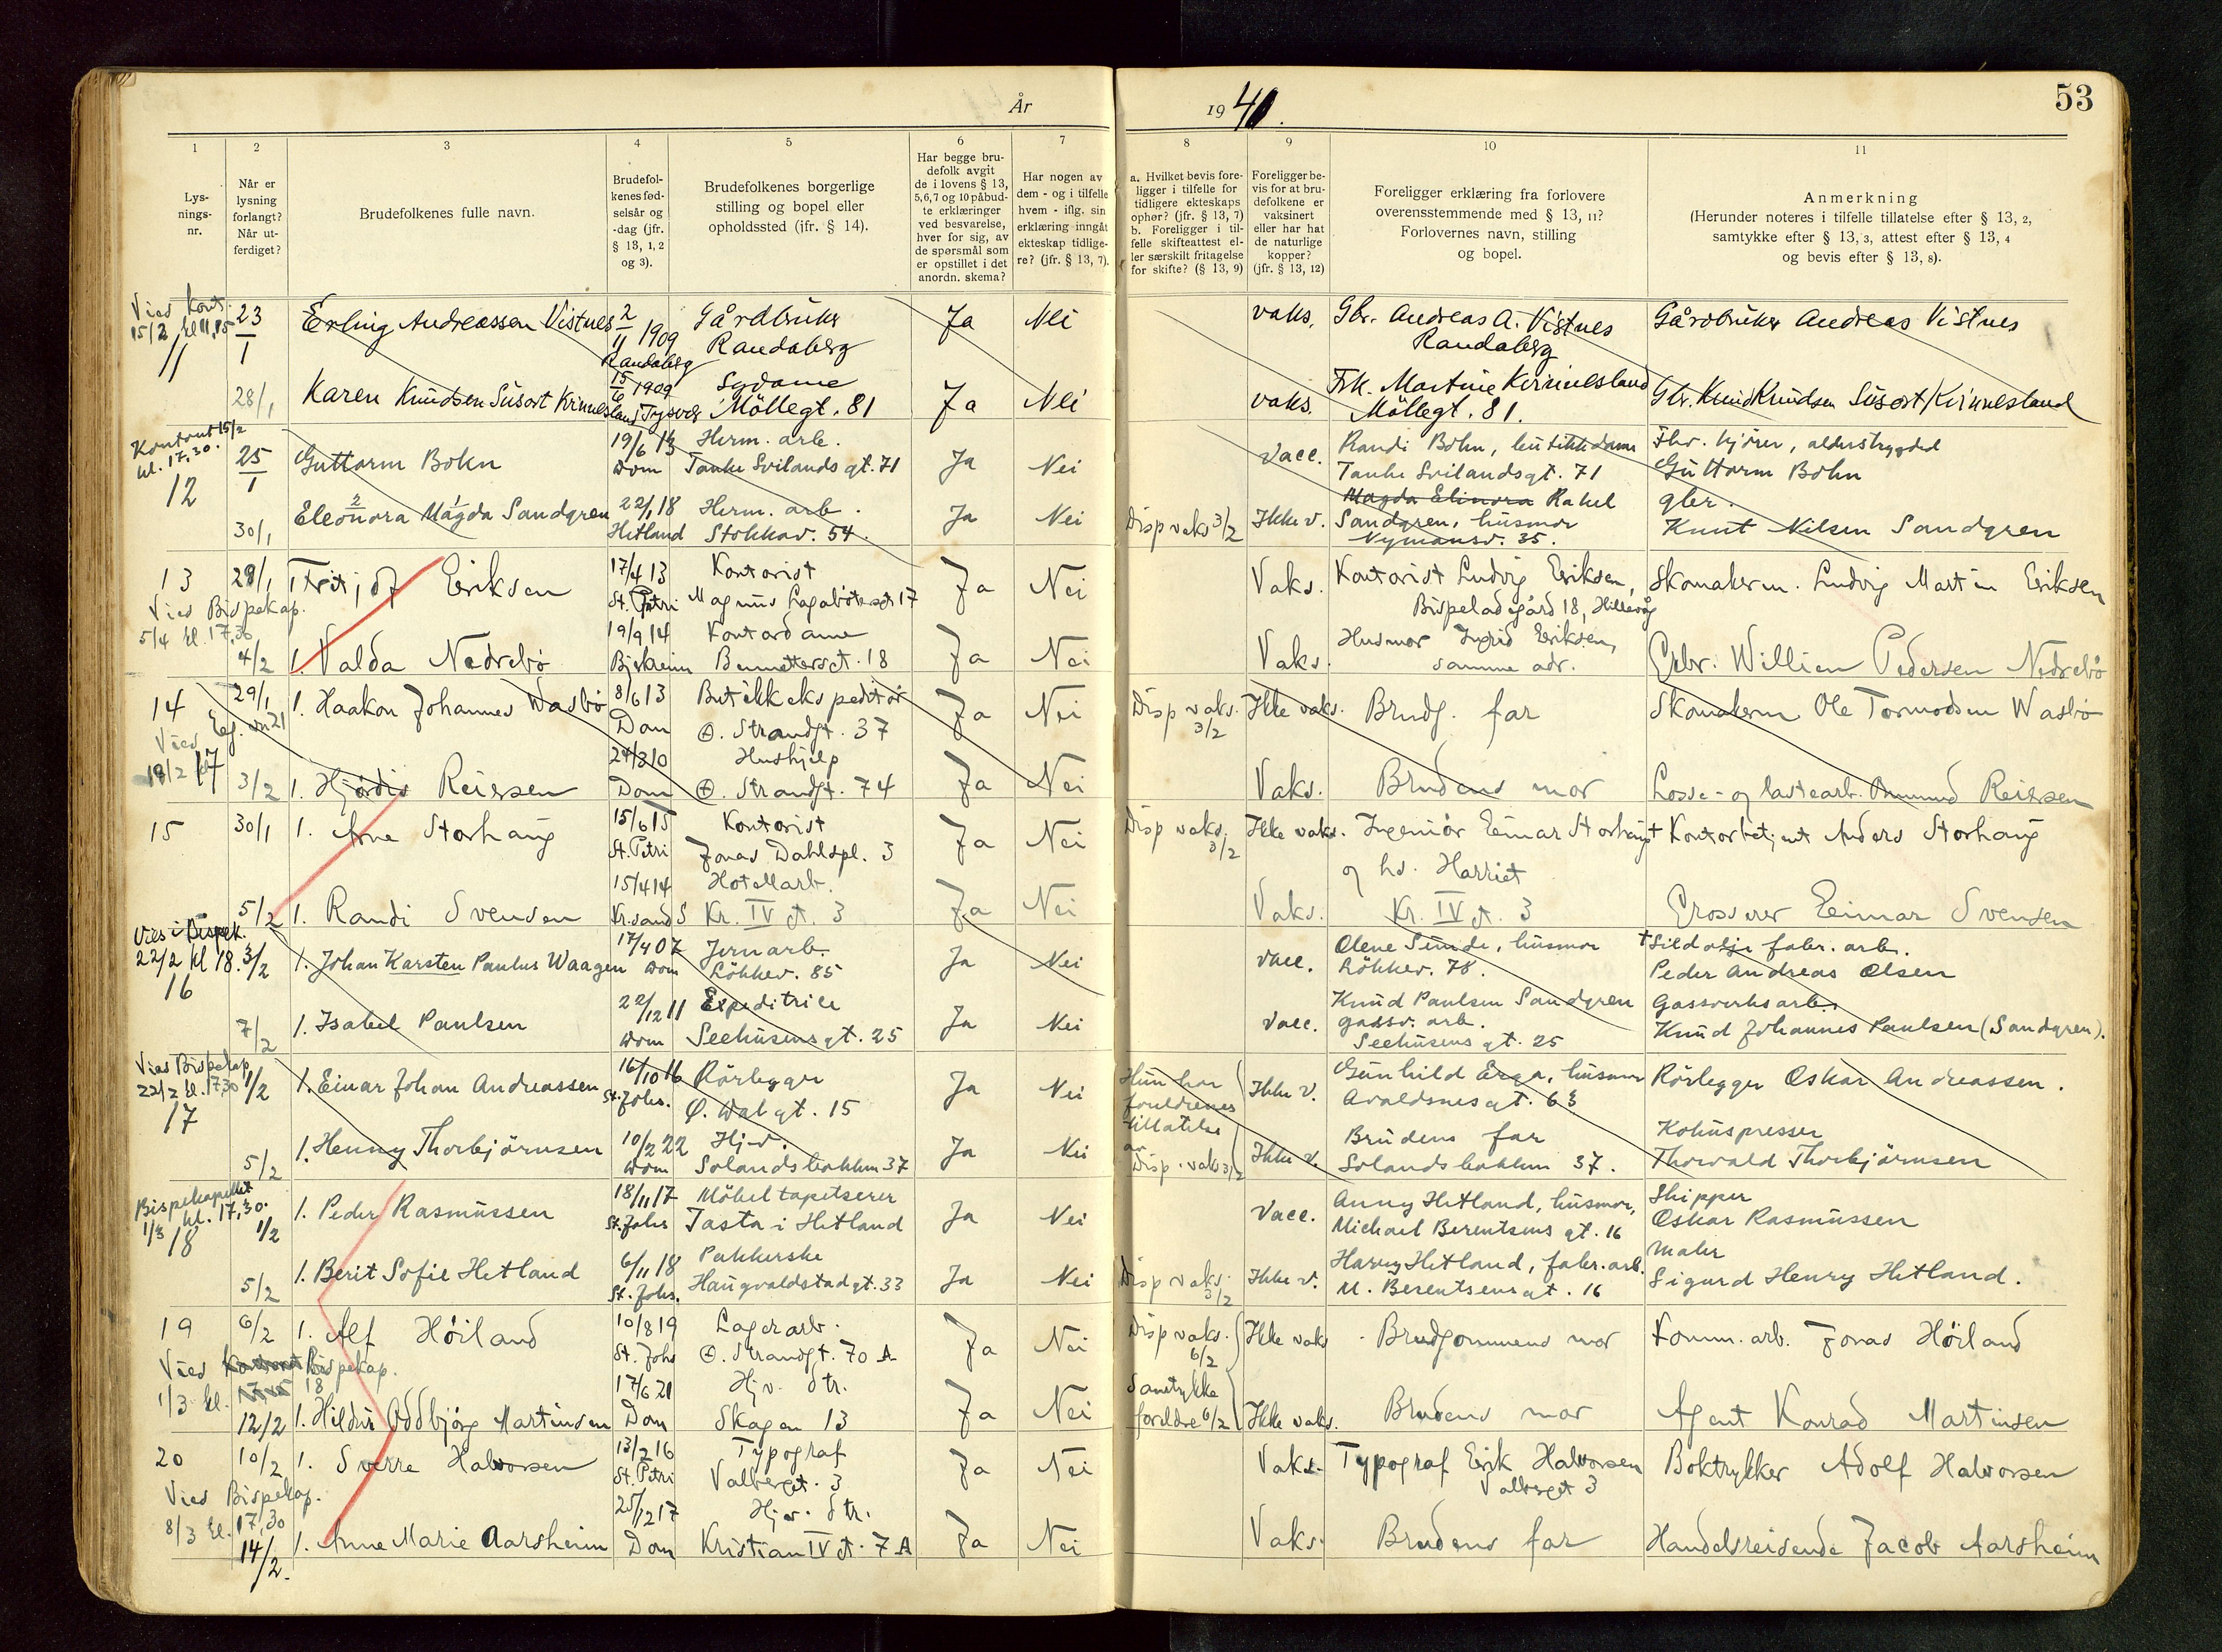 År 1941.
53
1
2
3
4
5
6
7
8
9
10
11
Lys-
nings-
nr.
Når er
lysning
forlangt?
Når ut-
ferdiget?
Brudefolkenes fulle navn.
Brudefol-
kenes fød-
selsår og
-dag (jfr.
§ 13, 1, 2
og 3).
Brudefolkenes borgerlige
stilling og bopel eller
opholdssted (jfr. § 14).
Har begge bru-
defolk avgit
de i lovens § 13,
5,6,7 og 10 påbud-
te erklæringer
ved besvarelse,
hver for sig, av
de spørsmål som
er opstillet i det
anordn. skema?
Har nogen av
dem - og i tilfelle
hvem - iflg. sin
erklæring inngåt
ekteskap tidlige-
re? (jfr. § 13, 7).
a. Hvilket bevis fore-
ligger i tilfelle for
tidligere ekteskaps
ophør? (jfr. § 13, 7)
b. Foreligger i til-
felle skifteattest el-
ler særskilt fritagelse
for skifte? (§ 13, 9)
Foreligger be-
vis for at bru-
defolkene er
vaksinert
eller har hat
de naturlige
kopper?
(jfr. § 13, 12)
Foreligger erklæring fra forlovere
overensstemmende med § 13, 11?
Forlovernes navn, stilling
og bopel.
Anmerkning
(Herunder noteres i tilfelle tillatelse efter § 13, 2,
samtykke efter § 13, 3, attest efter § 13, 4
og bevis efter § 13, 8).
Vies Kont.
15/2 kl 11,45
11
23/1
Erling Andreassen Vistnes
2/11 1909
Randaberg
Gårdbruker
Randaberg
Ja
Nei
vaks.
Gbr. Andreas A. Vistnes
Randaberg
Gårdbruker Andreas Vistnes
28/1
Karen Knudsen Susort Kinnesland
15/6 1909
Tysvær
Sydame
Möllegt. 81
Ja
Nei
vaks.
Frk. Martine Kinnesland
Möllegt. 81.
Gbr. Knud Knudsen Susort/Kinnesland
Kontoret 15/2
kl. 17,30.
12
25/1
Guttorm Bokn
19/6 13
Dom
Herm. arb.
Tanke Svilandsgt. 71
Ja
Nei
vacc.
Randi Bokn, butikkdame
Tanke Svilandsgt. 71
Fhv. kjører, alderstrygded
Guttorm Bokn
30/1
Eleonora Magda Sandgren
22/1 18
Hetland
Herm. arb.
Stokkav. 54.
Ja
Nei
Disp vaks 3/2
Ikke v.
Magda Elinora Rakel
Sandgren, husmor
Nymansv. 35.
gbr.
Knut Nilsen Sandgren
13
Vies Bispekap.
5/4 kl. 17,30
28/1
Fritjof Eriksen
17/4 13
St. Petri
Kontorist
Magnus Lagabøtersgt 17
Ja
Nei
Vaks.
Kontorist Ludvig Eriksen,
Bispeladegård 18, Hillevåg
Skomakerm. Ludvig Martin Eriksen
4/2
1. Valda Nedrebø
19/9 14
Bjerkreim
Kontordame
18
Ja
Nei
Vaks.
Husmor Ingrid Eriksen,
samme adr.
Gbr. Willien Pedersen Nedrebø
14
Vies
18/2 kl 17
29/1
1. Haakon Johannes Wasbø
8/6 13
Dom
Butikkekspeditør
Ø. Strandgt. 37
Ja
Nei
Disp vaks.
3/2
Ikke vaks.
Brudg. far
Skomakerm Ole Tormodsen Wasbø
3/2
1. Hjørdis Reiersen
24/3 10
Dom
Hushjelp
Ø. Strandgt. 74
Ja
Nei
Vaks.
Brudens mor
Losse- og lastearb. Reiersen
15
30/1
1. Arne Storhaug
15/6 15
St. Petri
Kontorist
Jonas Dahlspl. 3
Ja
Nei
Disp vaks.
3/2
Ikke vaks.
Ingeniør Einar Storhaug
og hs. Harriet
Kr. IV gt. 3
† Kontorbetjent Anders Storhaug
5/2
1. Randi Svensen
15/4 14
Kr.sand S
Hotellarb.
Kr. IV gt. 3
Ja
Nei
Vaks.
Grosserer Einar Svensen
Vies i Bispek.
22/2 kl 18.
16
3/2
1. Johan Karsten Paulus Waagen
17/4 07
Dom
Jernarb.
Løkkev. 85
Ja
Nei
vacc.
Olene Sunde, husmor
Løkkev. 78.
† Sildolje fabr. arb.
Peder Andreas Olsen
7/2
1. Isabel Paulsen
22/12 11
Dom
Expeditrice
Seehusensgt. 25
Ja
Nei
vacc.
Knud Paulsen Sandgren
gassv. arb.
Seehusens gt. 25
Gassverksarb.
Knud Johannes Paulsen (Sandgren).
Vies Bispekap
22/2 kl. 17,30
17
1/2
1. Einar Johan Andreassen
16/10 16
St. Johs.
Rørlegger
Ø. gt. 15
Ja
Nei
Hun har
foreldrenes
tillatelse
Disp. vaks 3/2
Ikke v.
Gunhild Erga, husmor
Avaldsnesgt. 63
Rørlegger Oskar Andreassen.
5/2
1. Henny Thorbjörnsen
10/2 22
Dom
Hj.v.
Solandsbakken 37
Ja
Nei
Ikke v.
Brudens far
Solandsbakken 37.
Thorvald Thorbjörnsen
Bispekapellet
1/3 kl. 17,30.
18
1/2
1. Peder Rasmussen
18/11 17
St. Johs
Möbeltapetserer
Tasta i Hetland
Ja
Nei
Vacc.
Anny Hetland, husmor,
Michael Berentsens gt. 16
Skipper
Oskar Rasmussen
5/2
1. Berit Sofie Hetland
6/11 18
St. Johs.
Pakkerske
Haugvaldstadgt. 33
Ja
Nei
Disp vaks.
3/2
Ikke v.
Harry Hetland, fabr. arb.
M. Berentsensgt. 16
Maler
Sigurd Henry Hetland.
19
Vies Kontoret Bispekap.
1/3 kl. 18
6/2
1. Alf Høiland
10/8 19
St. Johs
Lagerarb.
Ø. Strandgt. 70 A
Ja
Nei
Disp vaks.
6/2
Ikke vaks
Brudgommens mor
Komm. arb. Jonas Høiland
12/2
1. Hildur Oddbjørg Martinsen
17/6 21
Dom
Hjv. dtr.
Skagen 13
Ja
Nei
Samtykke
foreldre 6/2
Ikke vaks.
Brudens mor
Agent Konrad Martinsen
20
Vies Bispekap.
8/3 kl. 17,30
10/2
1. Sverre Halvorsen
13/2 16
St. Petri
Typograf
Valberget. 3
Ja
Nei
Vaks.
Typograf Erik Halvorsen
Valberget 3
Boktrykker Adolf Halvorsen
14/2.
1. Anne Marie Aarsheim
25/12 17
Dom
Hjv. dtr.
Kristian IV gt. 7 A
Ja
Nei
Vaks.
Brudens far
Handelsreisende Jacob Aarsheim